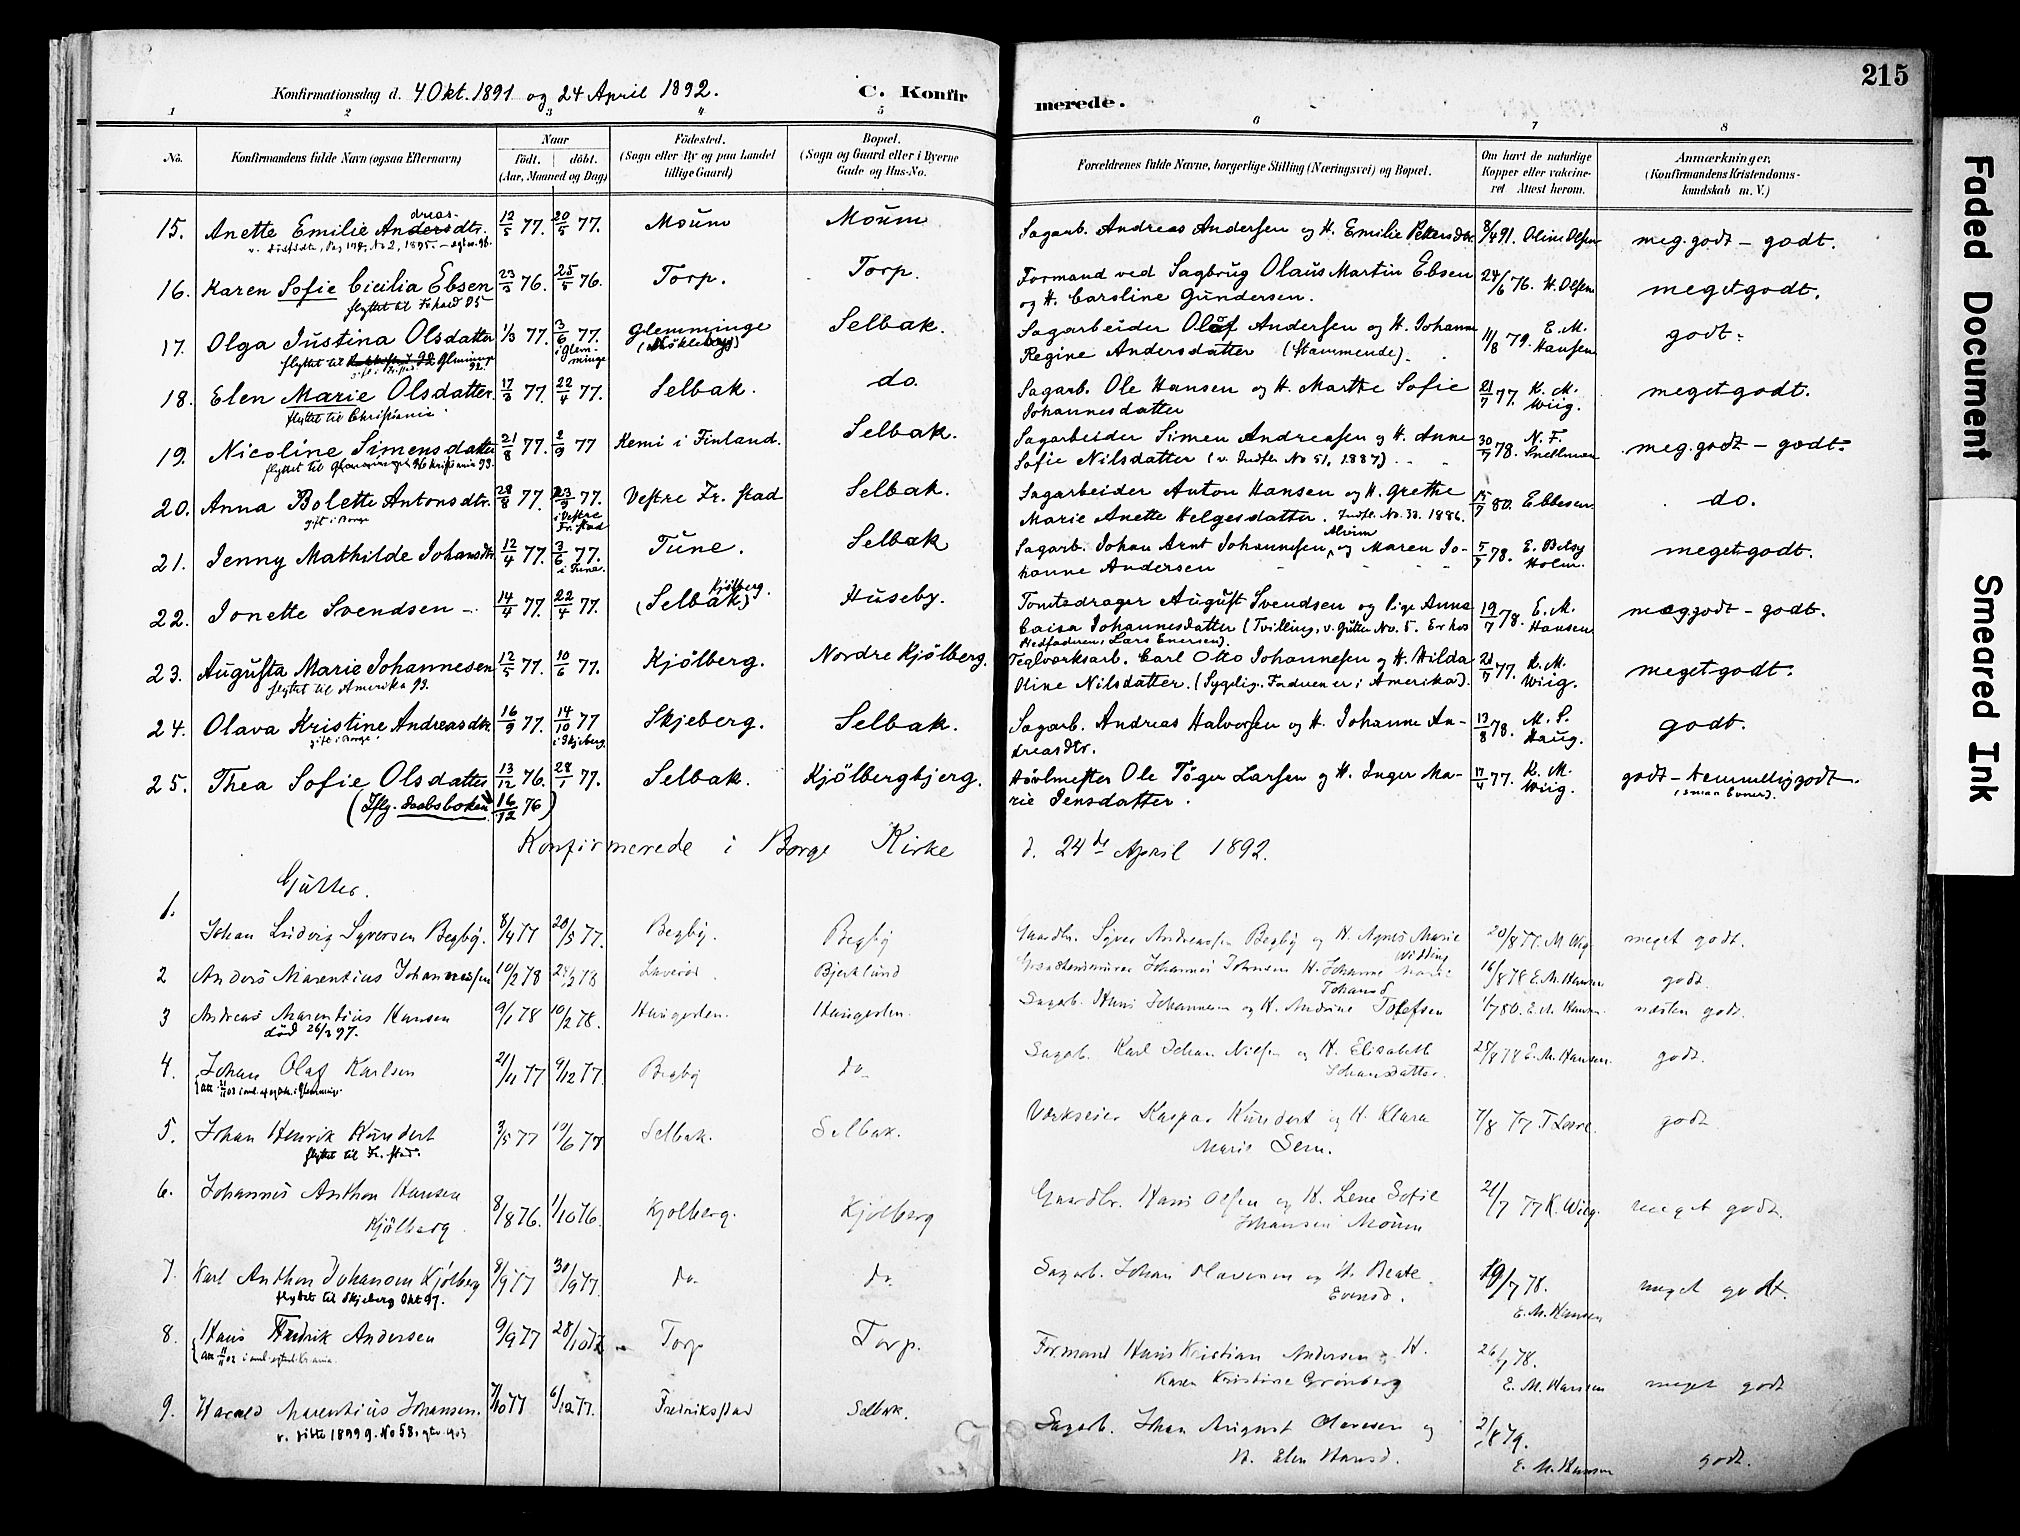 215
Konfirmationsdag d. 4 Okt. 1891 og 24 April 1892. C. Konfirmerede.
1 2 3 4 5 6 7 8
No. Konfirmandens fulde Navn (ogsaa Efternavn) Naar födt. döbt. (Aar, Maaned og Dag) Födested. (Sogn eller By og paa Landet tillige Gaard) Bopæl. (Sogn og Gaard eller i Byerne Gade og Hus-No. Forældrenes fulde Navne, borgerlige Stilling (Næringsvei) og Bopæl. Om havt de naturlige Kopper eller vakcineret Attest herom. Anmærkninger, (Konfirmandens Kristendomskundskab m. V.)
15. Anette Emilie Andersdtr. dreas- 12/5 77. 20/5 77. Moum Moum Sagarb. Andreas Andersen og H. Emilie Pettersdtr. 8/4 91. Oline Olsen meg. godt - godt.
16. Karen Sofie Cicilia Ebsen 23/3 76. 25/5 76. Torp. Torp. Formand ved Sagbrug Olaus Martin Ebsen 24/6 76. H. Olsen meget godt.
flyttet til Fr.hald 95 og H. Caroline Gundersen.
17. Olga Justina Olsdatter 1/3 77. 3/6 77. i Glemminge Glemminge Selbak. Sagarbeider Olof Andersen og H. Johanne 11/8 79. E. M. Hansen godt.
Regine Andersdatter (Stammende).
18. Elen Marie Olsdatter. 17/3 77. 22/4 77. Selbak. do. Sagarb. Ole Hansen og H. Marthe Sofie 21/7 77. K. M. Wiig. meget godt.
flyttet til Christiania. Johannesdatter
19. Nicoline Simensdatter 21/8 77. 2/9 77 Kemi i Finland. Selbak. Sagarbeider Simen Andreasen og H. Anne 30/7 78. N. F. Snellman meg. godt - godt.
Sofie Nilsdatter (v. Indfl. No 51, 1887)
20. Anna Bolette Antonsdtr. 28/8 77. 23/9 77. i Vestre Fr. stad Vestre Fr. stad Selbak. Sagarbeider Anton Hansen og H. Grethe 15/7 80. Ebbesen do.
gift i Borge Marie Anette Helgesdatter. Indfl. No. 33. 1886.
21. Jenny Mathilde Johansdtr. 12/4 77. 3/6 77. i Tune. Tune. Selbak Sagarb. Johan Arnt Johannesen, Alvim og Maren Jo- 5/7 78. E. Betsy Holm. meget godt.
hanne Andersen
22. Jonette Svendsen - 14/4 77. 22/4 77. (Selbak) Kjölberg. Huseby. Tomtedrager August Svendsen og Pige Anne 19/7 78. E. M. Hansen meg. godt - godt.
Caisa Johannesdatter (Tvilling, v. Gutter No. 5. Er hos
Stedfaderen, Lars Enersen).
23. Augusta Marie Johannesen 12/5 77. 10/6 77. Kjölberg. Nordre Kjölberg. Teglværksarb. Carl Otto Johannesen og H. Hilda 21/7 77. K. M. Wiig. meget godt.
flyttet til Amerika 93. Oline Nilsdatter. (Sygelig. Faderen er i Amerika).
24. Olava Kristine Andreasdtr. 16/9 77. 14/10 77 i Skjeberg. Skjeberg. Selbak. Sagarb. Andreas Halvorsen og H. Johanne An- 13/8 78. M. S. Haug. godt.
gift i Borge. dreasdtr.
25. Thea Sofie Olsdatter 13/12 76. 28/1 77. Selbak. Kjölbergbjerg. Hövlmester Ole Töger Larsen og H. Inger Ma- 17/4 77. K. M. Wiig. godt - temmelig godt.
(Iflg. Daabsboken 16/12 76) rie Jensdatter. (smaa Evner).
Konfirmerede i Borge Kirke d. 24de April 1892.
Gutter.
1. Johan Ludvig Syversen Begby. 8/4 77 20/5 77. Begby. Begby Gaardbr. Syver Andreasen Begby og H. Agnes Marie 20/8 77. M Wiig meget godt.
2 Anders Marentius Johannessen 10/2 78 Bjerklund Johannes Johnsen H. Johanne Marie 16/8 78 E. M. Hansen godt.
3 Andreas Marentius Hansen 9/1 78 10/2 78. Haugesten. Haugesten. Sagarb. Hans Johannesen og H. Andrine Tolefsen 1/7 80. E. M. Hansen næsten godt.
död 26/3 97.
4. Johan Olaf Karlsen 21/11 77 9/12 77. Begby do Sagarb. Karl Johan Nilsen og H. Elisabeth 25/8 78 E. M. Hansen. godt.
Johansdatter.
5. Johan Henrik Kundert 3/5 77 10/6 77 Selbak. Selbak. Værkseier Kaspar Kundert og H. Klara 7/8 77 godt
flyttet til Fr. stad. Marie Sem.
6. Johannes Anthon Hansen 8/8 76. 1/10 76. Kjolberg. Kjolberg Gaardbr. Hans Olsen og H. Lene Sofie 21/7 77 K. Wiig. meget godt.
Kjölberg Johansen Moum
7. Karl Anthon Johansen Kjölberg 8/9 77 30/9 77. do. do. Sagarb. Johan Olavesen og H. Beate 19/7 78. meget godt.
flyttet til Skjeberg Okt 97. Evensd. E. M. Hansen
8. Hans Fredrik Andersen 9/9 77 28/10 77 Torp Torp. Formand Hans Kristian Andersen og H. 26/7 78.
Karen Kristine Grönberg E. M. Hansen meget godt
9. Harald Marentius Johansen. 7/10 77 6/12 77. Fredriksstad Selbak. Sagarb. Johan August Olavesen og 2/8 79.
H. Elen Hansd. E. M. Hansen godt.
Faded Document
Smeared Ink